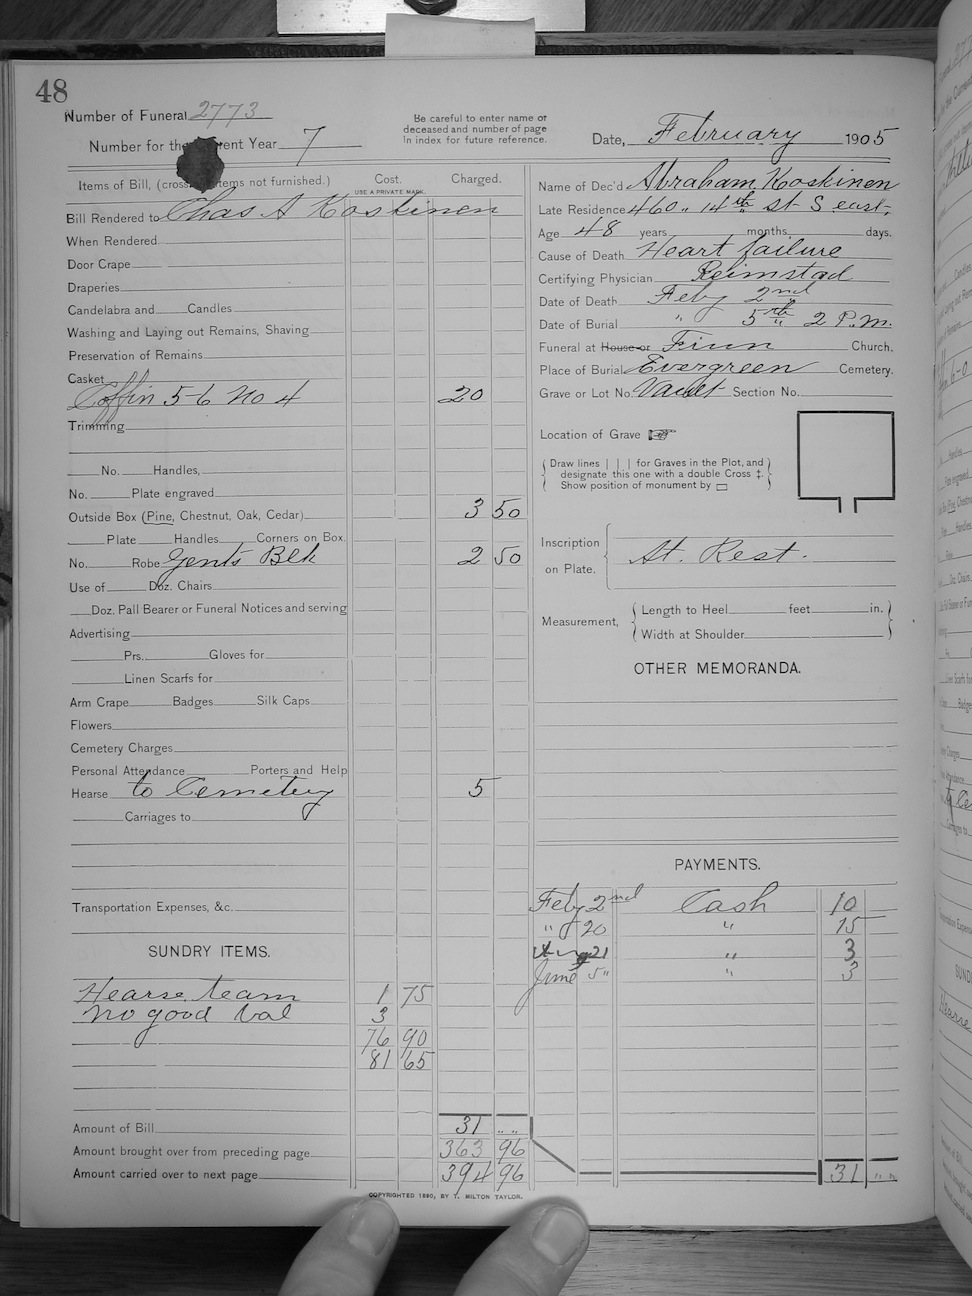 48
Number of Funeral 2773
Number for the ent Year 7
Be careful to enter name or
deceased and number of page
in index for future reference.
Date, February 1905
Items of Bill, (cross items not furnished.)
Cost.
USE A PRIVATE MARK.
Charged.
Bill Rendered to Chas A Koskinen
When Rendered
Door Crape
Draperies
Candelabra and Candles
Washing and Laying out Remains, Shaving
Preservation of Remains
Casket
Coffin 5-6 No 4 20
Trimming
No. Handles,
No. Plate engraved
Outside Box (Pine, Chestnut, Oak, Cedar) 3 50
Plate Handles Corners on Box.
No. Robe Gents Blk 2 50
Use of Doz. Chairs
Doz. Pall Bearer or Funeral Notices and serving
Advertising
Prs. Gloves for
Linen Scarfs for
Arm Crape Badges Silk Caps
Flowers
Cemetery Charges
Personal Attendance Porters and Help
Hearse to Cemetery 5
Carriages to
Transportation Expenses, &c.
SUNDRY ITEMS.
Hearse team 1 75
No good bal 3
76 90
81 65
Amount of Bill 31 " "
Amount brought over from preceding page 363 96
Amount carried over to next page 394 96
Name of Dec'd Abraham Koskinen
Late Residence 460 " 14th St S east,
Age 48 years months, days.
Cause of Death Heart failure
Certifying Physician Reimstad
Date of Death Feby 2nd
Date of Burial " 5th 2 P.M.
Funeral at House or Finn Church.
Place of Burial Evergreen Cemetery.
Grave or Lot No. Vault Section No.
Location of Grave
Draw lines | | | for Graves in the Plot, and
designate this one with a double Cross ‡.
Show position of monument by
Inscription
on Plate.
At. Rest.
Measurement,
Length to Heel feet in.
Width at Shoulder
OTHER MEMORANDA.
PAYMENTS.
Feby 2nd Cash 10
" 20 " 15
21 " 3
June 5 " " 3
31 " "
COPYRIGHTED 1890, BY T. MILTON TAYLOR.